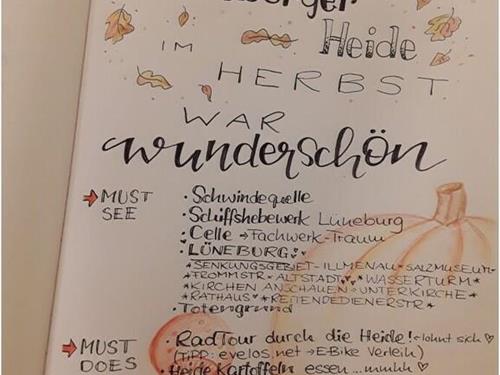 Heide
IM
HERBST
WAR
wunderschön
→ MUST SEE
· Schwindequelle
· Schiffshebewerk Lüneburg
· Celle → Fachwerk-Traum
· LÜNEBURG
*SENKUNGSGEBIET-ILLMENAU*SALZMUSEUM*
*TROMMSTR*ALTSTADT♥*WASSERTURM*
*KIRCHEN ANSCHAUEN → UNTERKIRCHE*
*RATHAUS*REITENDEDIENERSTR*
· Totengrund
→ MUST DOES
· RadTour durch die Heide! lohnt sich ♡
(TIPP: evelos.net → E-Bike Verleih)
· Heide Kartoffeln essen ... mmmh ♡